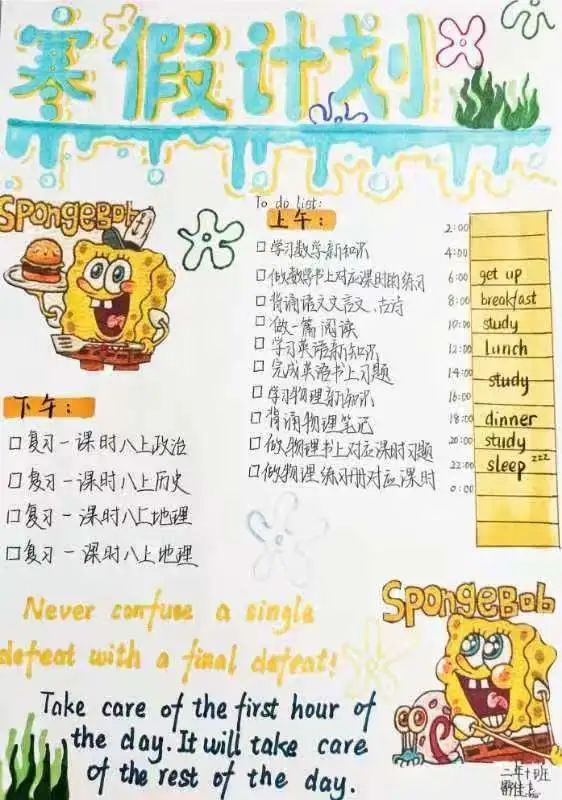 寒假计划
SPONGEBOB
To do list:
上午:
□学习数学新知识
□做数学书上对应课时的练习
□背诵语文文言文、古诗
□做一篇阅读
□学习英语新知识
□完成英语书上习题
□学习物理新知识
□背诵物理笔记
□做物理书上对应课时习题
□做物理练习册对应课时
2:00
4:00
6:00 get up
8:00 breakfast
10:00 study
12:00 Lunch
14:00 study
16:00
18:00 dinner
20:00 study
22:00 sleep zzz
0:00
下午:
□复习一课时八上政治
□复习一课时八上历史
□复习一课时八上地理
□复习一课时八上地理
Never confuse a single
defeat with a final defeat!
Take care of the first hour of
the day. It will take care
of the rest of the day.
SPONGEBOB
二年十班